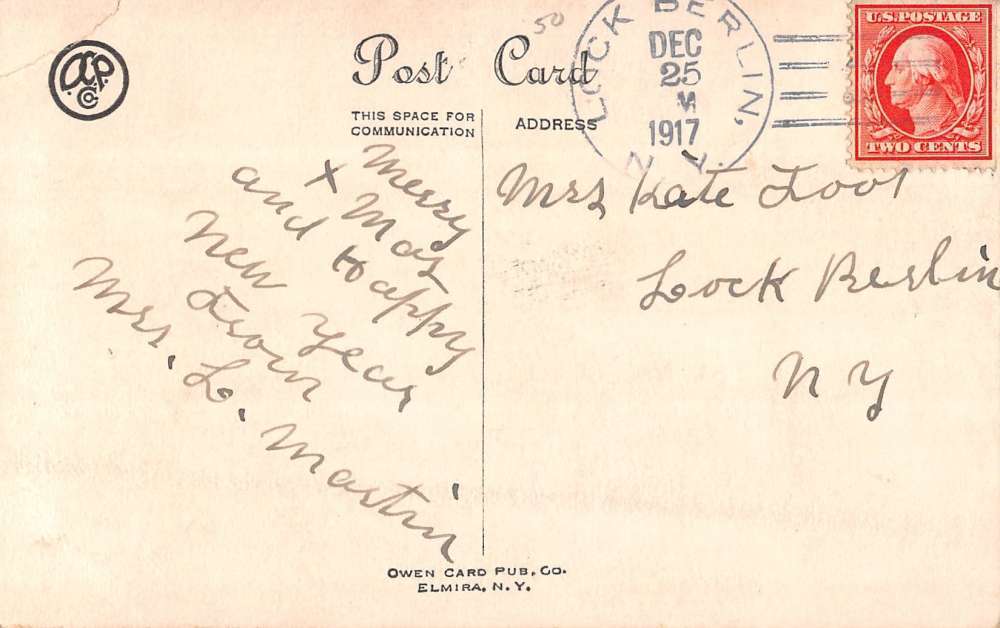 Post Card
THIS SPACE FOR
COMMUNICATION
ADDRESS
50
LOCK BERLIN,
DEC
25
M
1917
N.Y.
U.S. POSTAGE
TWO CENTS
Merry
X Mas
and Happy
New Year
From
Mrs. L. Martin
Mrs Kate Foot
Lock Berlin
N Y
OWEN CARD PUB. CO.
ELMIRA, N. Y.